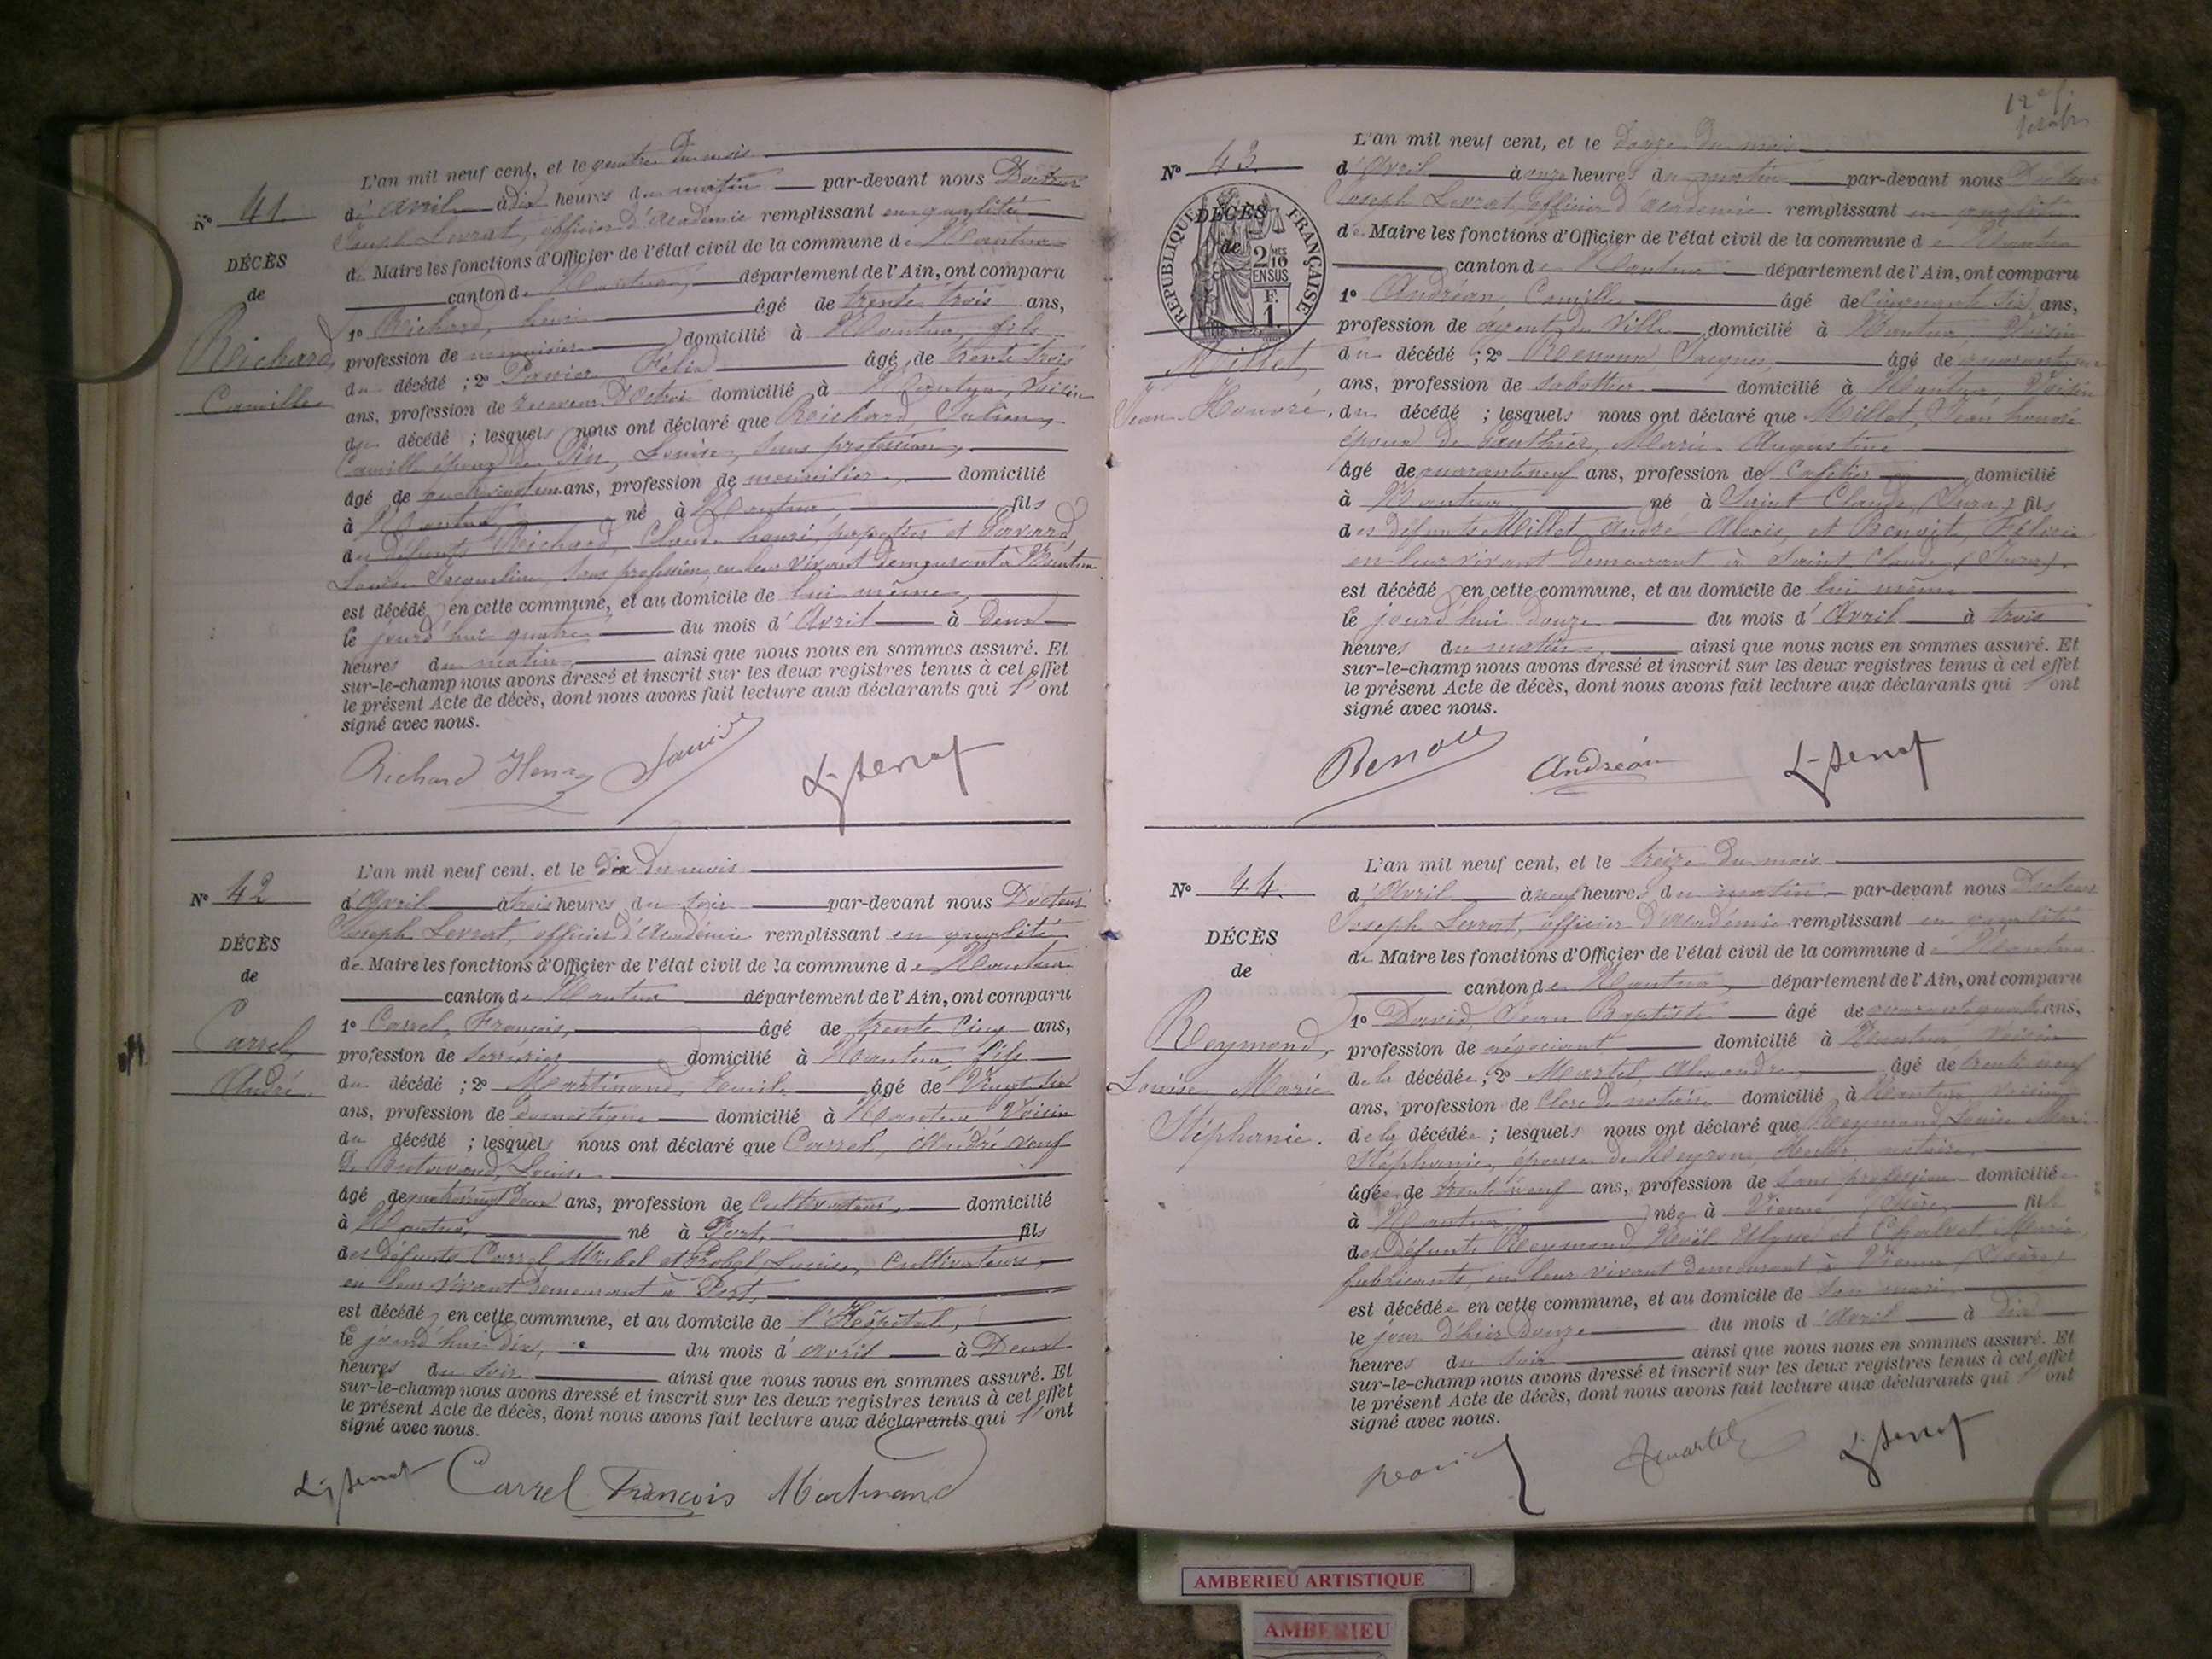 L'an mil neuf cent, et le quatre du mois
Nº 41.
d'avril à dix heures du matin par-devant nous Docteur
Joseph Levrat, officier d'Académie remplissant en qualité
DÉCÈS
de Maire les fonctions d'Officier de l'état civil de la commune de Nantua
de
canton de Nantua, département de l'Ain, ont comparu
Reichard,
1º Reichard, henri âgé de trente trois ans,
profession de menuisier domicilié à Nantua, fils
Camille
du décédé ; 2º Félix âgé de trente trois
ans, profession de receveur d'Octroi domicilié à Nantua, Voisin
du décédé ; lesquels nous ont déclaré que Reichard,
Camille époux de Louise, sans profession,
âgé de ans, profession de domicilié
à Nantua, né à Nantua, fils
des défunts Reichard, Claude henri, et
Louise Jacqueline, sans profession, en leur vivant demeurant à Nantua
est décédé en cette commune, et au domicile de lui même,
le jourd'hui quatre du mois d'Avril à deux
heures du matin, ainsi que nous nous en sommes assuré. Et
sur-le-champ nous avons dressé et inscrit sur les deux registres tenus à cet effet
le présent Acte de décès, dont nous avons fait lecture aux déclarants qui l'ont
signé avec nous.
Richard Henry
L'an mil neuf cent, et le dix du mois
Nº 42
d'Avril à trois heures du soir par-devant nous Docteur
Joseph Levrat, officier d'Académie remplissant en qualité
DÉCÈS
de Maire les fonctions d'Officier de l'état civil de la commune de Nantua
de
canton de Nantua département de l'Ain, ont comparu
Carrel,
1º Carrel, François, âgé de trente cinq ans,
profession de serrurier domicilié à Nantua, fils
André.
du décédé ; 2º Martinand, Emile âgé de Vingt six
ans, profession de domestique domicilié à Nantua Voisin
du décédé ; lesquels nous ont déclaré que Carrel, André veuf
de Louise
âgé de quatrevingt deux ans, profession de cultivateur, domicilié
à Nantua, né à Port, fils
des défunts Carrel, Michel et Louise, cultivateurs,
en leur vivant demeurant à Port,
est décédé en cette commune, et au domicile de l'Hôpital,
le jourd'hui dix, du mois d'avril à Deux
heures du soir ainsi que nous nous en sommes assuré. Et
sur-le-champ nous avons dressé et inscrit sur les deux registres tenus à cet effet
le présent Acte de décès, dont nous avons fait lecture aux déclarants qui l'ont
signé avec nous.
Carrel François Martinand
12e f.
L'an mil neuf cent, et le Douze du mois
Nº 43.
d'Avril à onze heures du matin par-devant nous Docteur
Joseph Levrat, officier d'Académie remplissant en qualité
DÉCÈS
de Maire les fonctions d'Officier de l'état civil de la commune de Nantua
de
RÉPUBLIQUE FRANÇAISE
2/10 EN SUS
F. 1.
canton de Nantua département de l'Ain, ont comparu
1º Andréan, Camille âgé de Cinquante six ans,
profession de agent de Ville domicilié à Nantua, Voisin
Millet,
du décédé ; 2º Renoux, Jacques, âgé de
ans, profession de sabottier domicilié à Nantua, Voisin
Jean Honoré.
du décédé ; lesquels nous ont déclaré que Millet, Jean honoré
époux de Gauthier, Marie Augustine
âgé de quaranteneuf ans, profession de Cafetier domicilié
à Nantua né à Saint-Claude (Jura) fils
des défunts Millet André Alexis, et Benoit, Félicie
en leur vivant demeurant à Saint Claude (Jura).
est décédé en cette commune, et au domicile de lui même
le jourd'hui douze du mois d'Avril à trois
heures du matin, ainsi que nous nous en sommes assuré. Et
sur-le-champ nous avons dressé et inscrit sur les deux registres tenus à cet effet
le présent Acte de décès, dont nous avons fait lecture aux déclarants qui l'ont
signé avec nous.
Andréan
L'an mil neuf cent, et le treize du mois
Nº 44.
d'Avril à neuf heures du matin par-devant nous Docteur
Joseph Levrat, officier d'Académie remplissant en qualité
DÉCÈS
de Maire les fonctions d'Officier de l'état civil de la commune de Nantua
de
canton de Nantua, département de l'Ain, ont comparu
Reymond,
1º David, Jean Baptiste âgé de quarantequatre ans,
profession de négociant domicilié à Nantua, voisin
Louise Marie
de la décédée ; 2º Martel, Alexandre, âgé de trente neuf
ans, profession de Clerc de notaire domicilié à Nantua, voisin
Stéphanie.
de la décédée ; lesquels nous ont déclaré que Reymond, Louise Marie
Stéphanie, épouse de notaire,
âgée de trente neuf ans, profession de sans profession domiciliée
à Nantua née à Vienne (Isère) fille
des défunts Reymond, Noël et Marie,
fabricants, en leur vivant demeurant à Vienne (Isère)
est décédée en cette commune, et au domicile de son mari,
le jour d'hier douze du mois d'Avril à dix
heures du soir ainsi que nous nous en sommes assuré. Et
sur-le-champ nous avons dressé et inscrit sur les deux registres tenus à cet effet
le présent Acte de décès, dont nous avons fait lecture aux déclarants qui l'ont
signé avec nous.
David Martel
AMBERIEU ARTISTIQUE
AMBERIEU